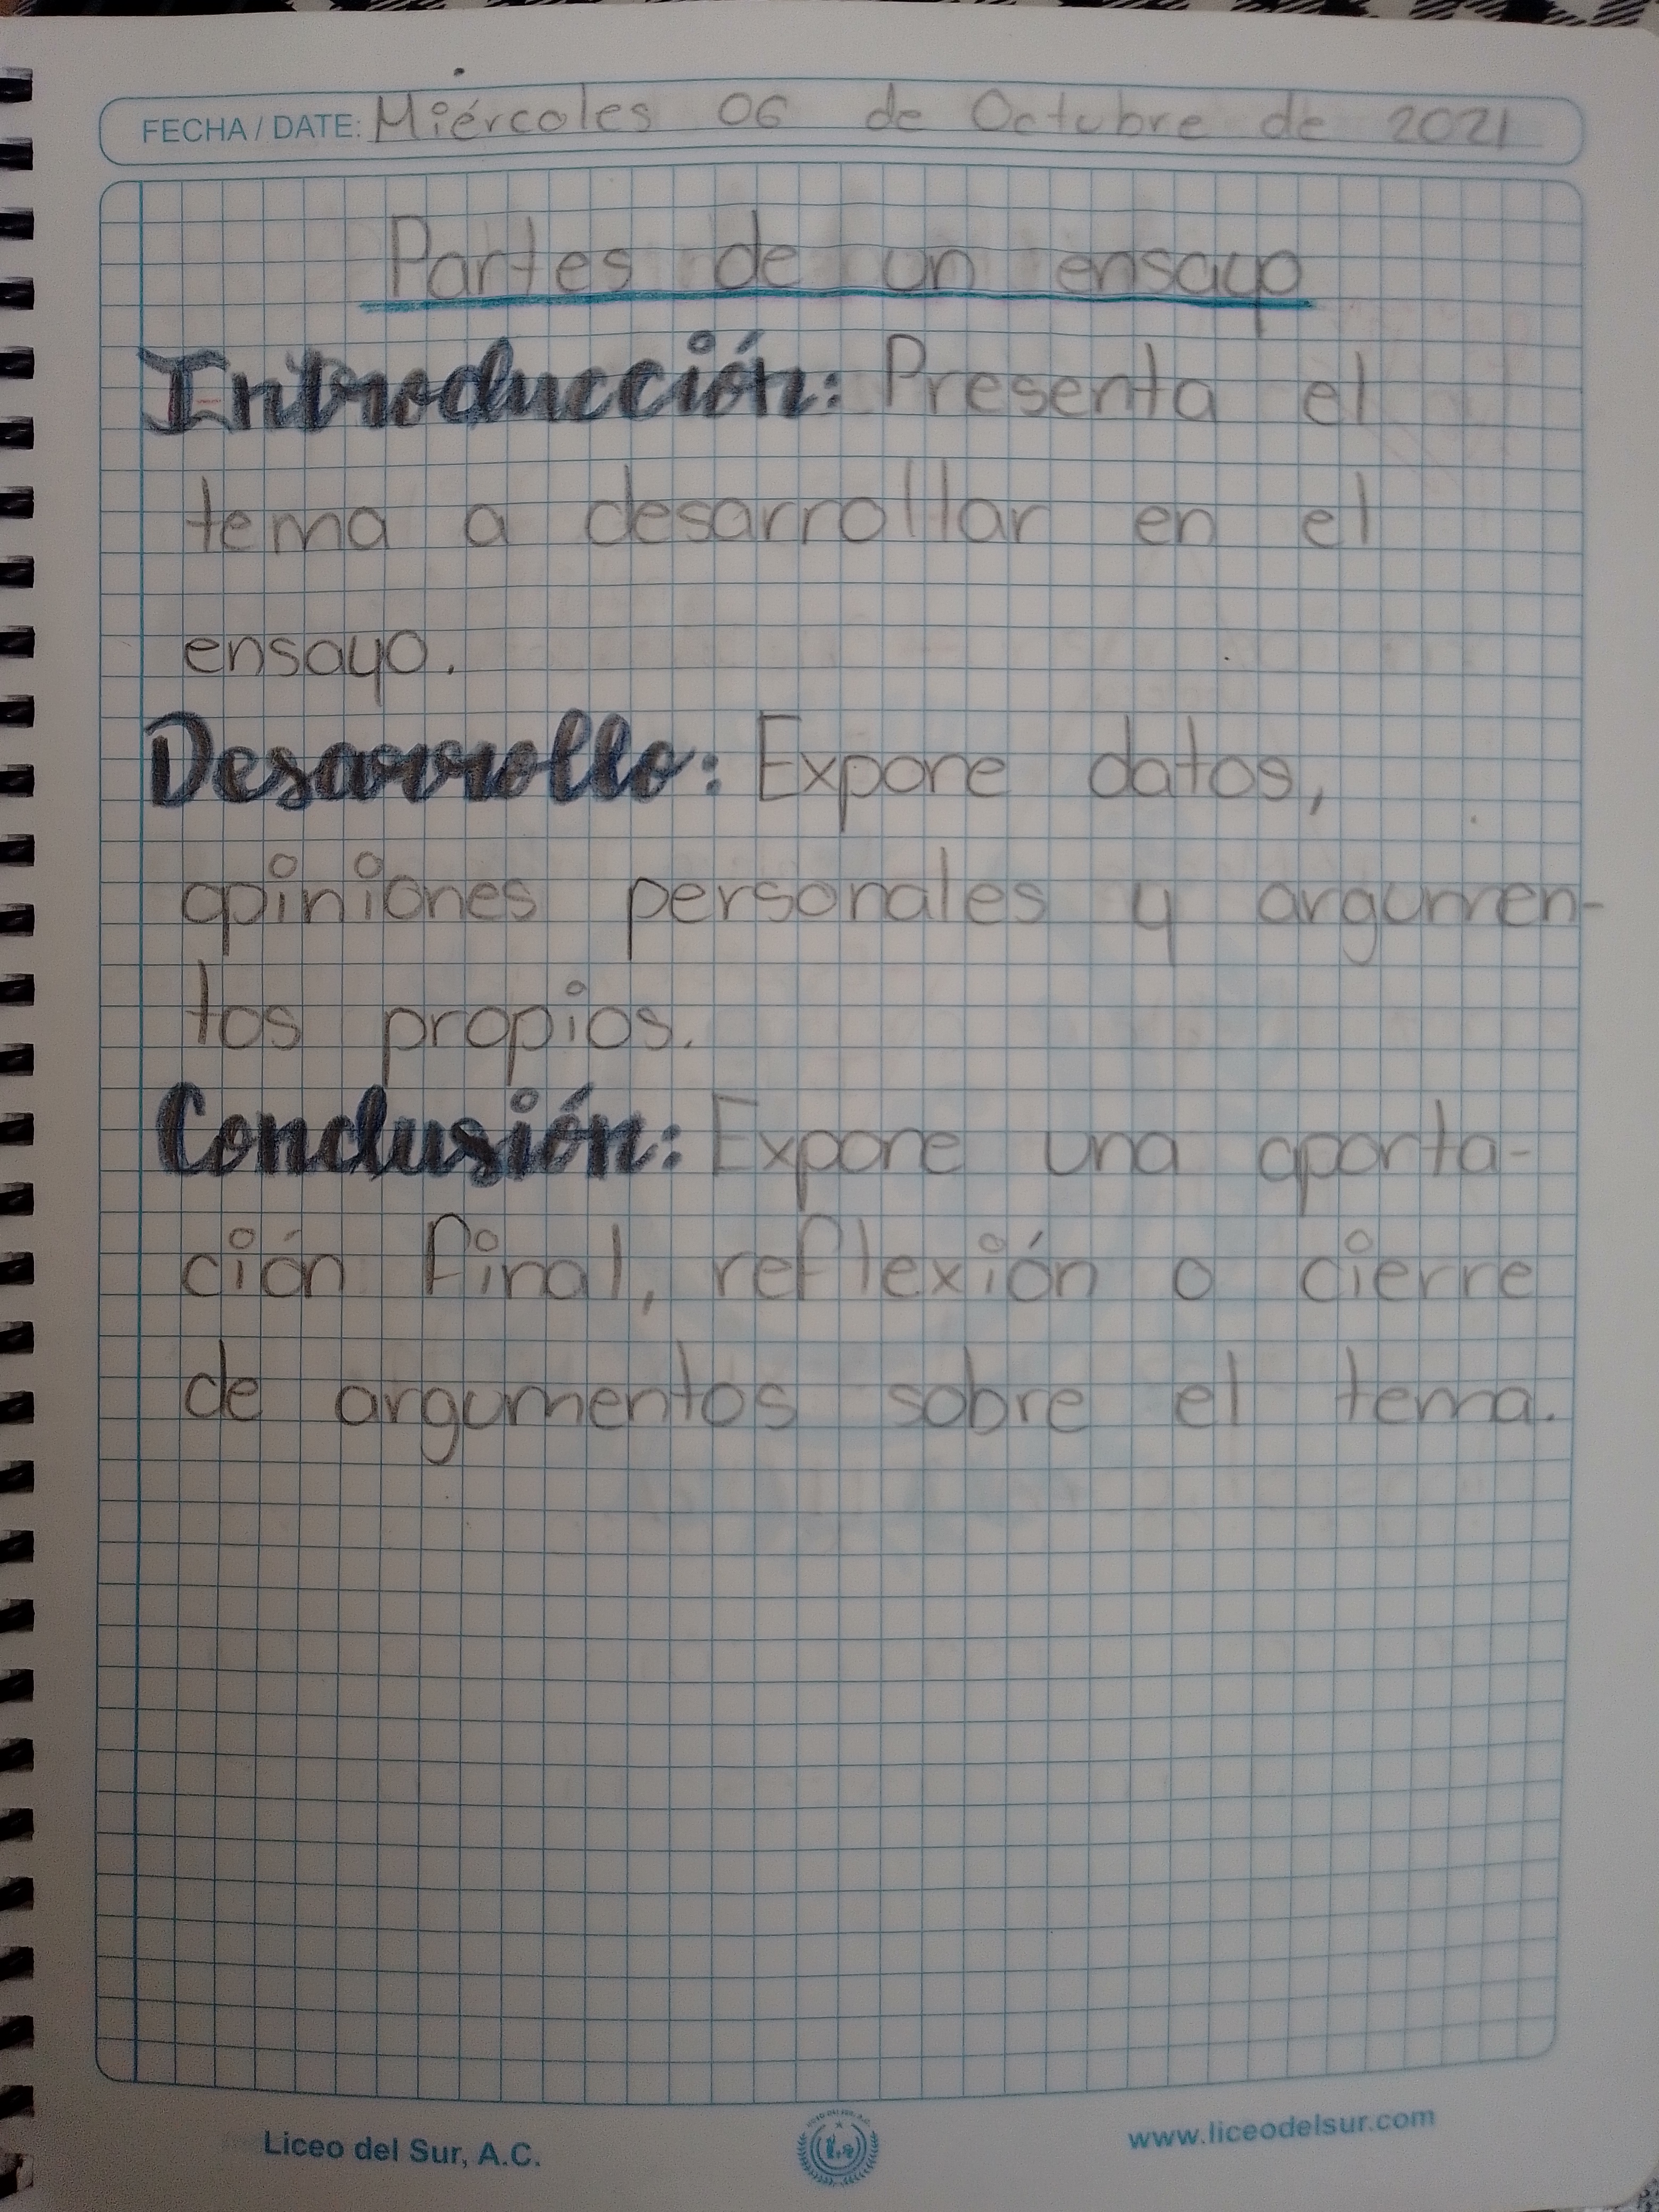 FECHA / DATE: Miércoles 06 de Octubre de 2021
Partes de un ensayo
Introducción: Presenta el
tema a desarrollar en el
ensayo.
Desarrollo: Expone datos,
opiniones personales y argumen-
tos propios.
Conclusión: Expone una aporta-
ción final, reflexión o cierre
de argumentos sobre el tema.
Liceo del Sur, A.C.
www.liceodelsur.com